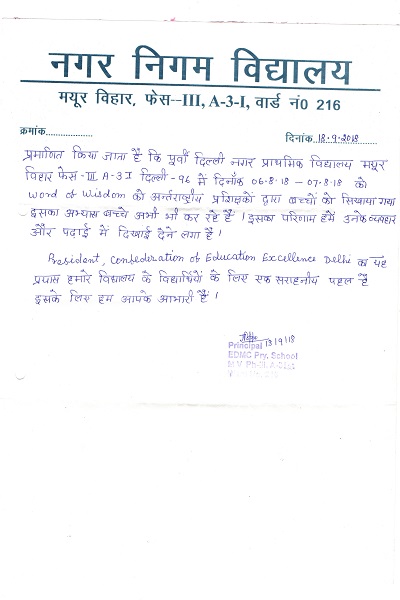 नगर निगम विद्यालय
मयूर विहार, फेस--III, A-3-I, वार्ड नं0 216
क्रमांक.................... दिनांक 18.9.2018
प्रमाणित किया जाता है कि पूर्वी दिल्ली नगर प्राथमिक विद्यालय मयूर
विहार फेस-III A-3 I दिल्ली-96 में दिनाँक 06-8-18 - 07-8-18 को
Word of Wisdom को अर्न्तराष्ट्रीय प्रशिक्षकों द्वारा बच्चों को सिखाया गया
इसका अभ्यास बच्चे अभी भी कर रहे हैं। इसका परिणाम हमें उनके व्यवहार
और पढ़ाई में दिखाई देने लगा है।
President, Consederation of Education Excellence Delhi का यह
प्रयास हमारे विद्यालय के विद्यार्थियों के लिए एक सराहनीय पहल है
इसके लिए हम आपके आभारी हैं।
13/9/18
Principal
EDMC Pry. School
M.V. Ph-III, A-3